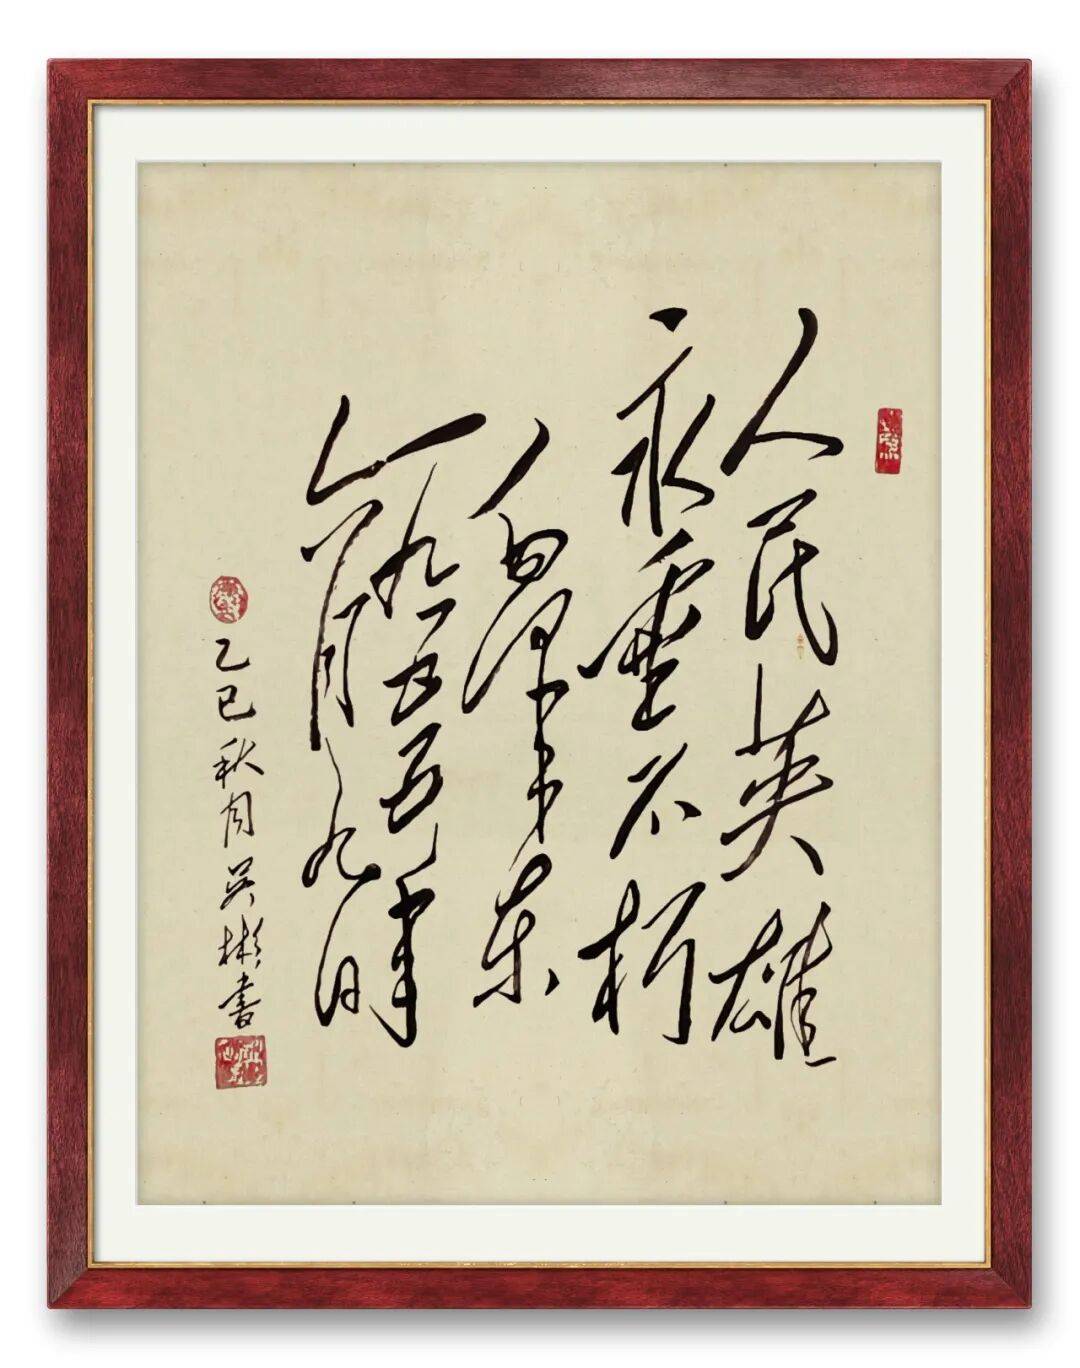 人民英雄
永垂不朽
毛泽东
一九五五年
六月九日
乙巳秋月吴彬书